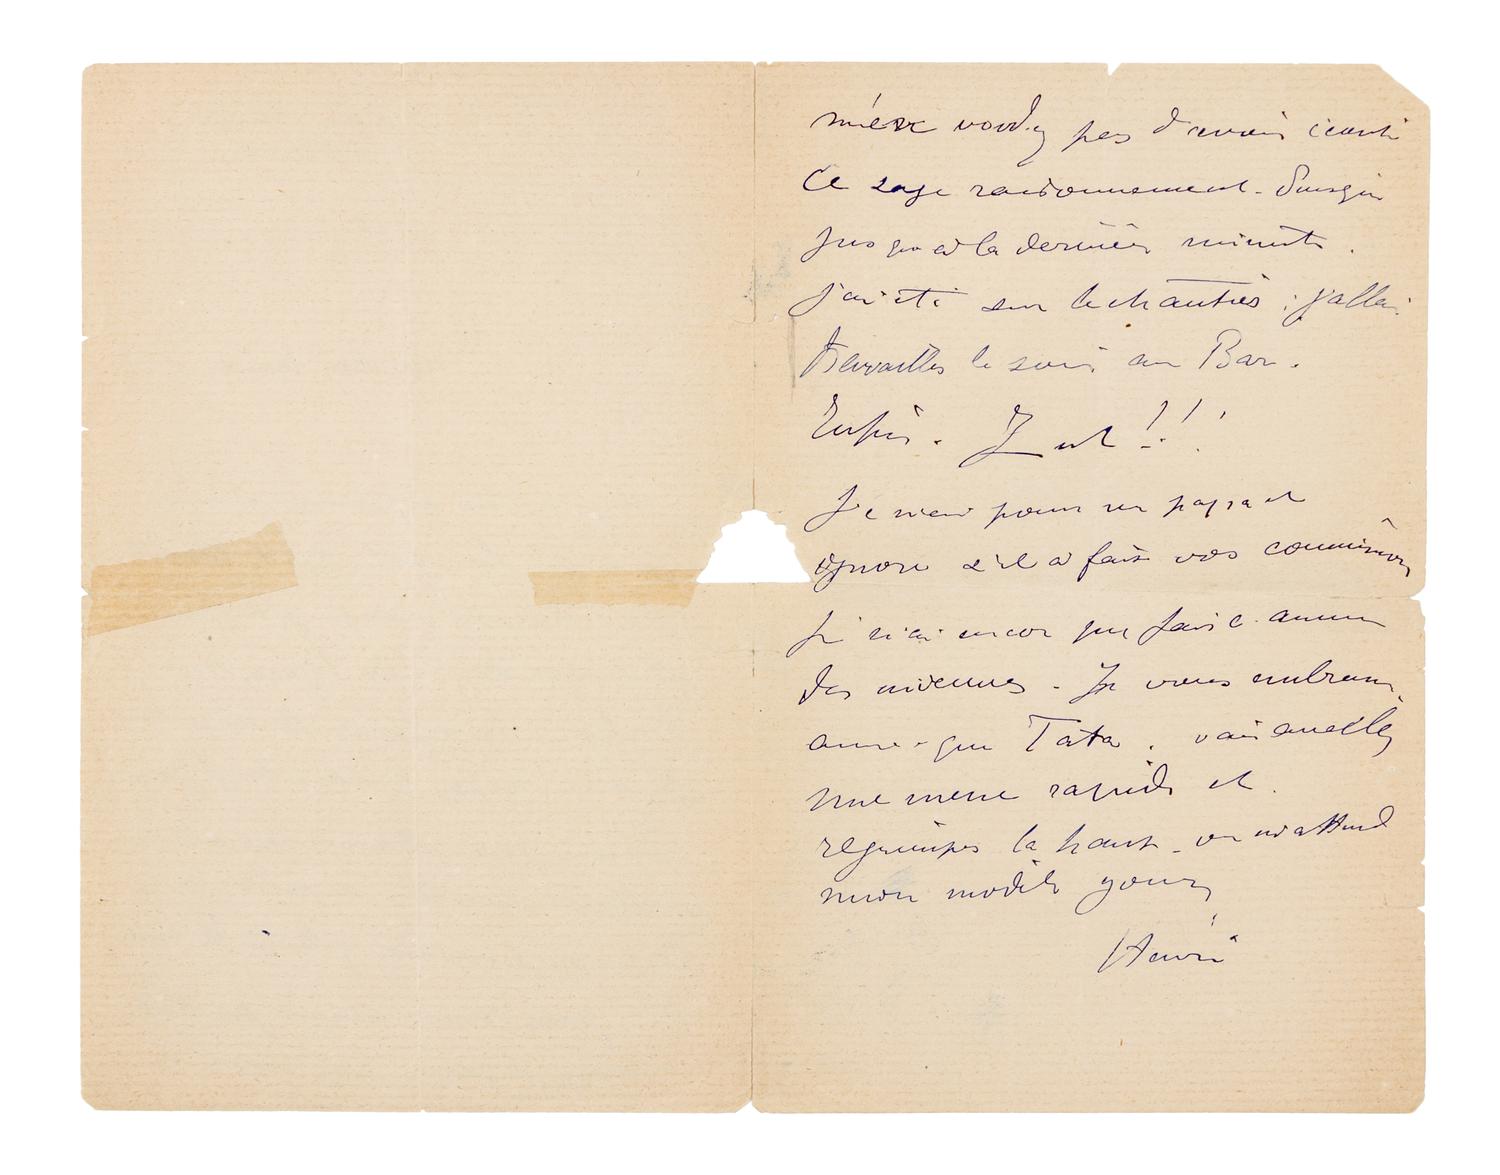 m'en voudrez pas d'avoir écouté
ce sage raisonnement. Puisque
jusqu'à la dernière minute.
j'ai été sur le chantier ; j'allai
travailler le soir au Bar.
Enfin. Zut !!!
Je viens pour papa et
ignore s'il a fait vos commissions
Je n'ai encore que fait aucun
des miennes. Je vous embrasse
ainsi que Tata.
une mene rapide et.
regrimper là haut. on m'attend
mon modèle
Henri